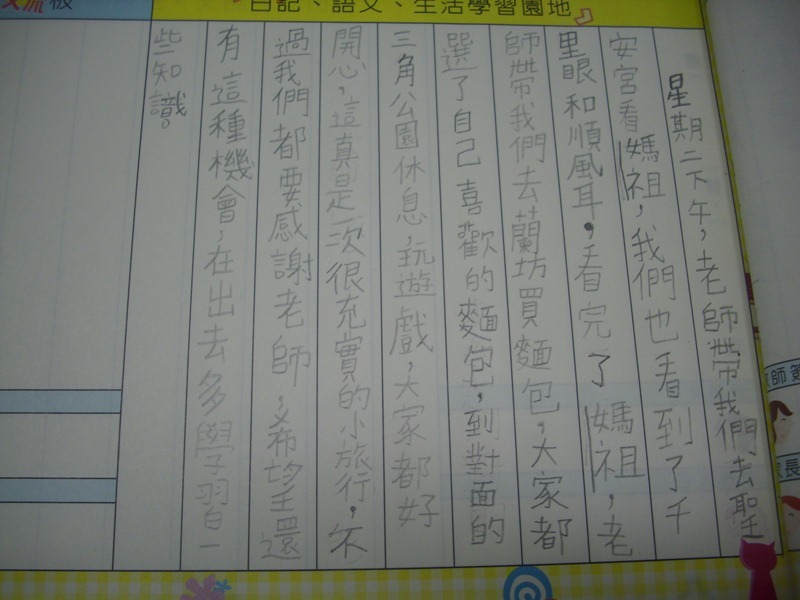 交流板
日記、語文、生活學習園地
星期二下午，老師帶我們去聖
安宮看媽祖，我們也看到了千
里眼和順風耳，看完了媽祖，老
師帶我們去蘭坊買麵包，大家都
選了自己喜歡的麵包，到對面的
三角公園休息，玩遊戲，大家都好
開心，這真是一次很充實的小旅行，不
過我們都要感謝老師，希望還
有這種機會，在出去多學習一
些知識。
師簽
長